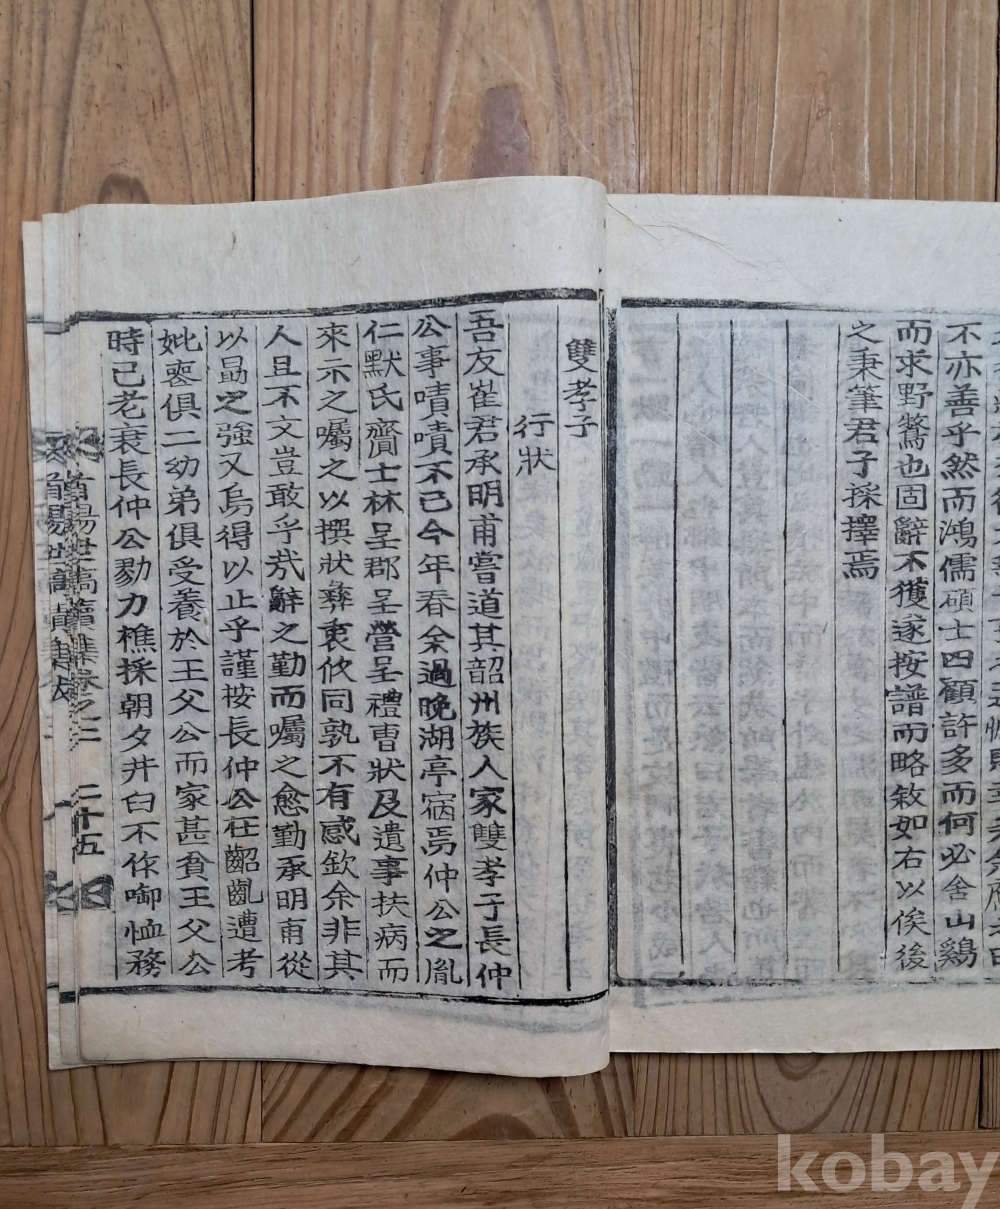 不亦善乎然而鴻儒碩士四顧許多而何必舍山鷄
而求野鶩也固辭不獲遂按譜而略敘如右以俟後
之秉筆君子採擇焉
雙孝子
行狀
吾友崔君承明甫嘗道其韶州族人家雙孝子長仲
公事嘖嘖不已今年春余過晩湖亭宿焉仲公之胤
仁默氏齎士林呈郡呈營呈禮曹狀及遺事扶病而
來示之囑之以撰狀彛衷攸同孰不有感歎余非其
人且不文豈敢乎哉辭之勤而囑之愈勤承明甫從
以勗之強又烏得以止乎謹按長仲公在齠齔遭考
妣喪俱二幼弟俱受養於王父公而家甚貧王父公
時已老衰長仲公勠力樵採朝夕井臼不作啣恤務
首陽世稿續集卷之二 二十五
首陽世稿續集
kobay